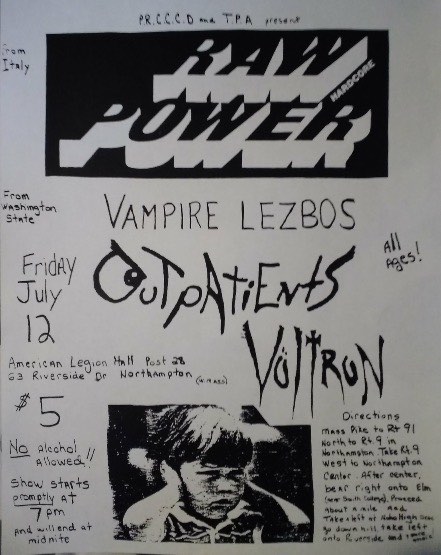 P.R.C.C.C.D and T.P.A present
From
Italy
RAW
HARDCORE
POWER
From
Washington
State
VAMPIRE LEZBOS
All
Ages!
OUTPATIENTS
Friday
July
12
VÖLTRON
American Legion Hall Post 28
63 Riverside Dr Northampton
$5
No alcohol
Allowed!!
Show starts
promptly at
7 pm
and will end at
midnite
Directions
Mass Pike to Rt 91
North to Rt. 9 in
Northampton Take Rt. 9
West to Northampton
Center. After center,
bear right onto Elm
Proceed
About a mile and
Take left at High
go down hill take left
onto Riverside and